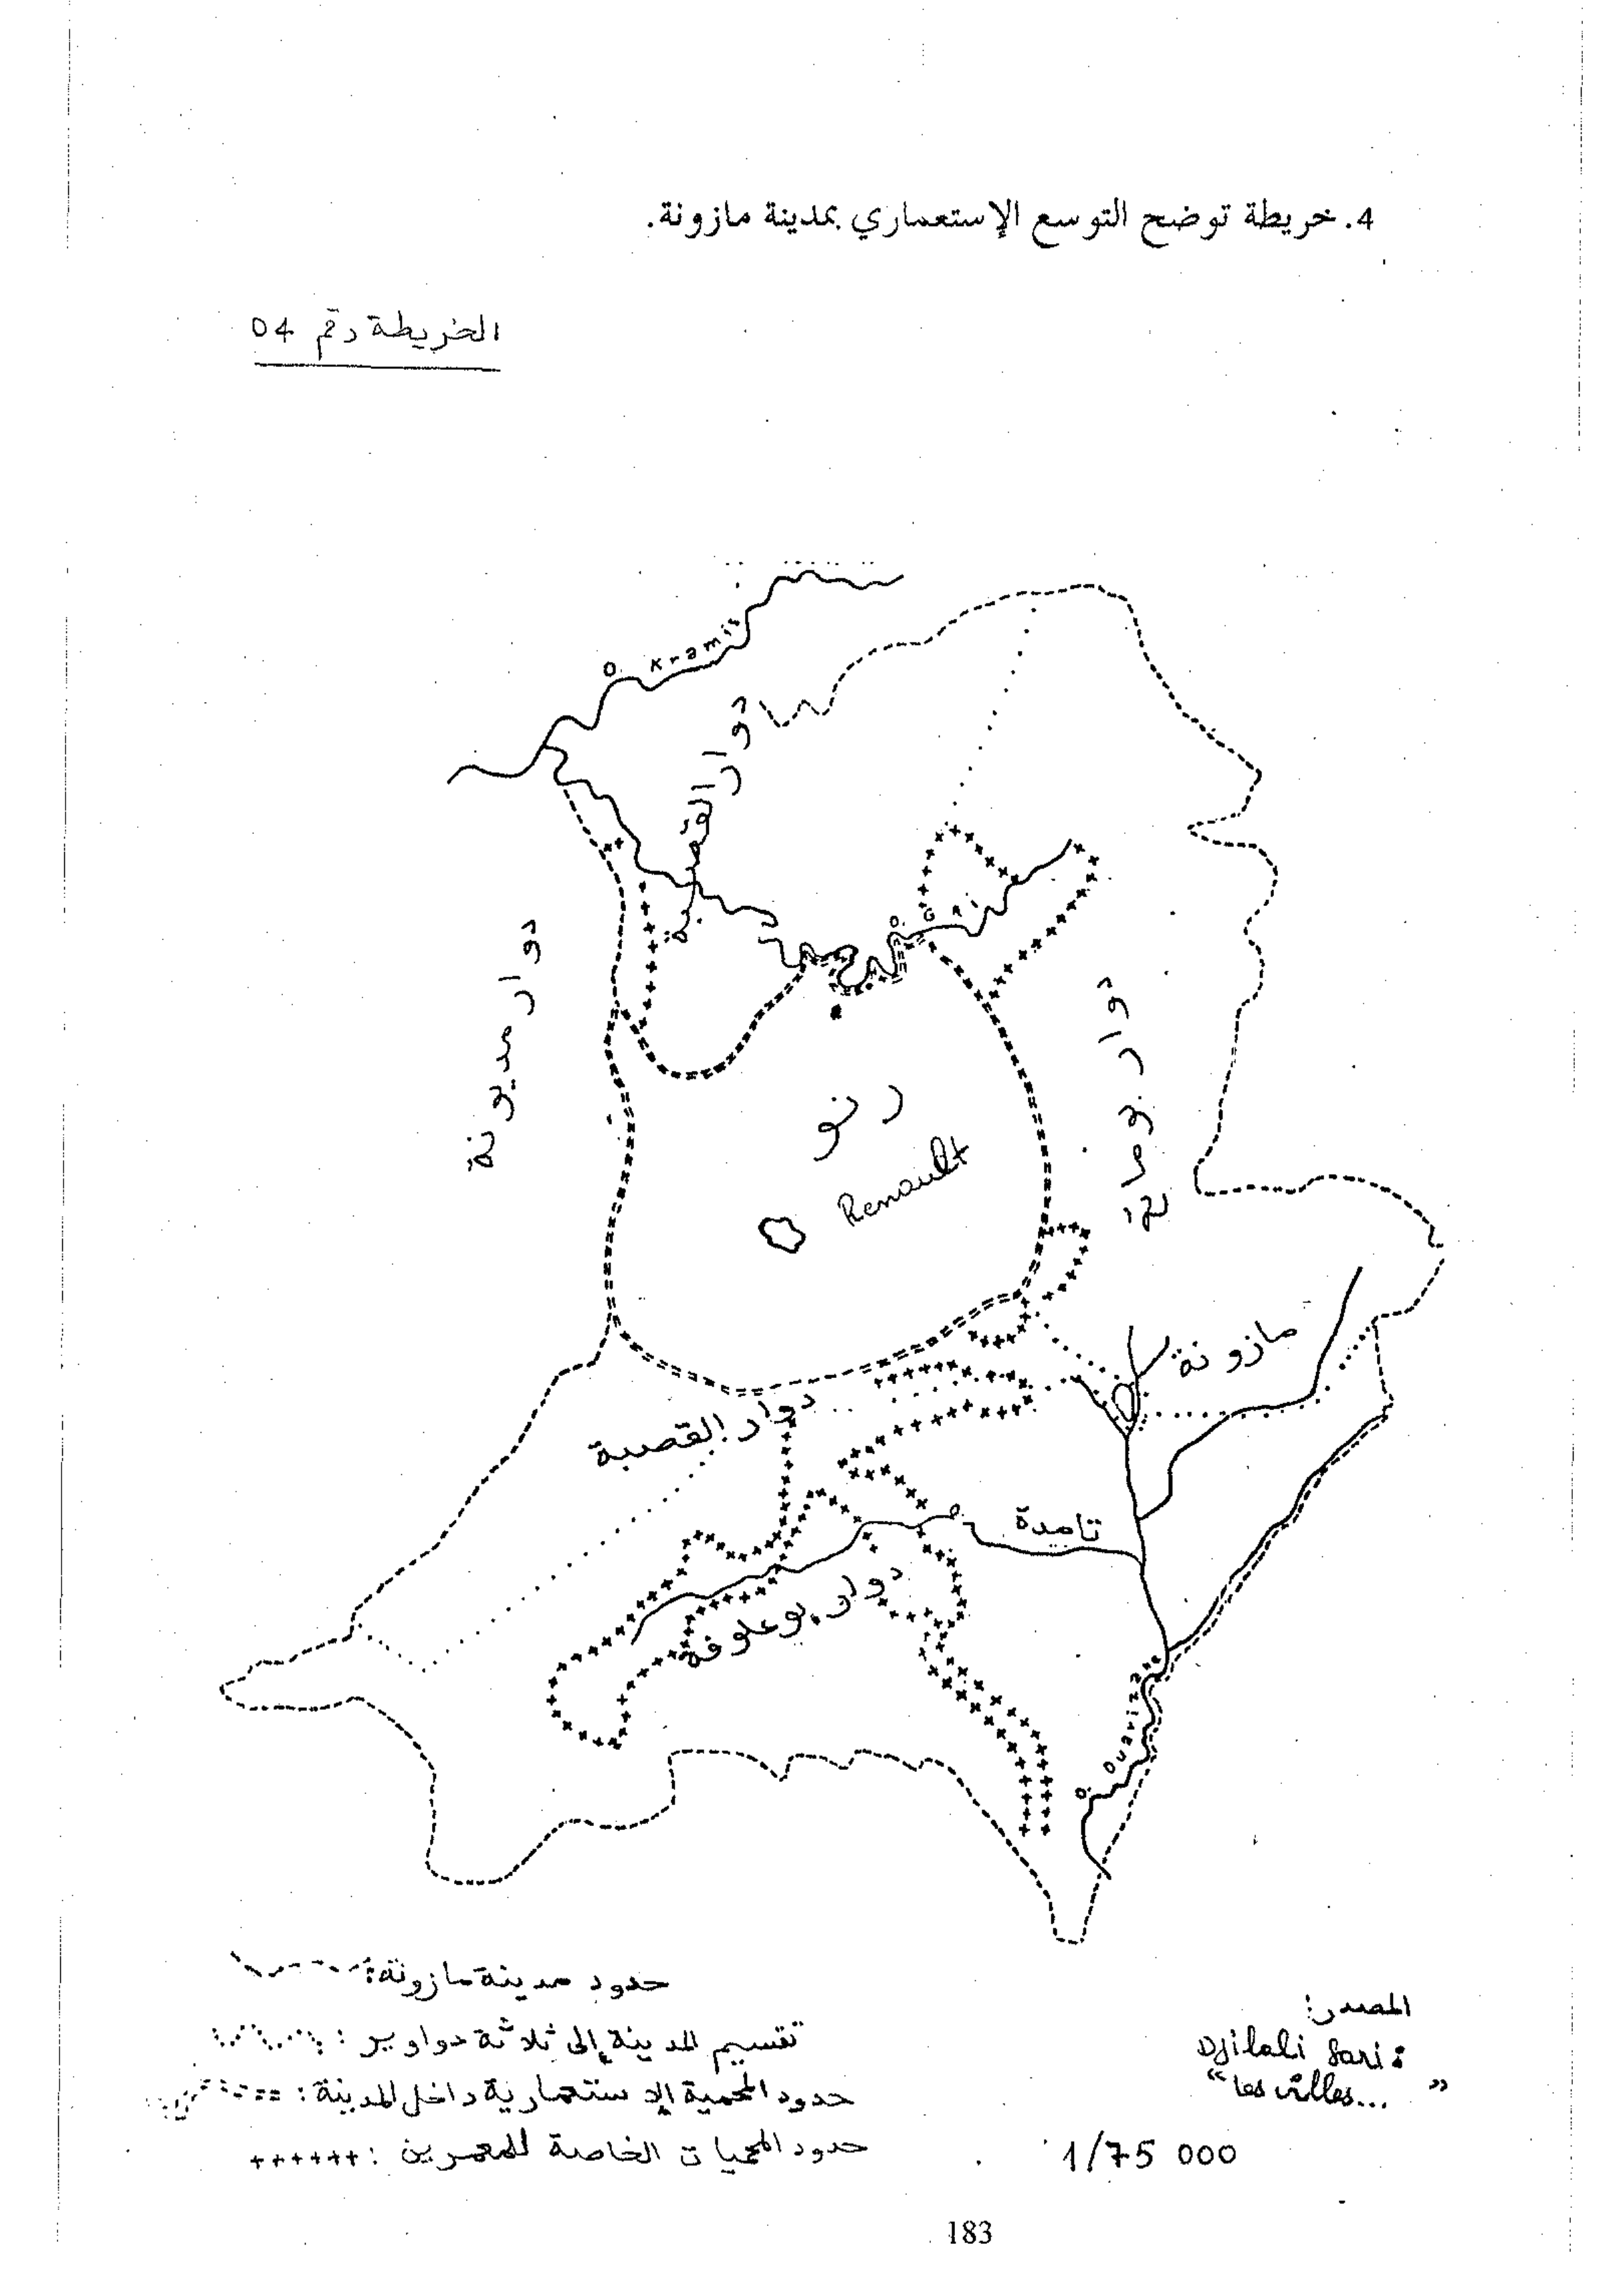 4. خريطة توضح التوسع الإستعماري بمدينة مازونة.
الخريطة رقم 04
O. Kramis
دوار القصبة
دوار مديونة
دوار بوماتة
رنو
Renault
مازونة
دوار القصبة
تامدة
دوار بوعلوفة
O. Ouarizane
حدود مدينة مازونة:
تقسيم المدينة إلى ثلاثة دواوير :
حدود المحمية الإستعمارية داخل المدينة :
حدود المحميات الخاصة للمعمرين : ++++++
المصدر:
Djilali Sari :
“les villes... ”
1/75 000
183